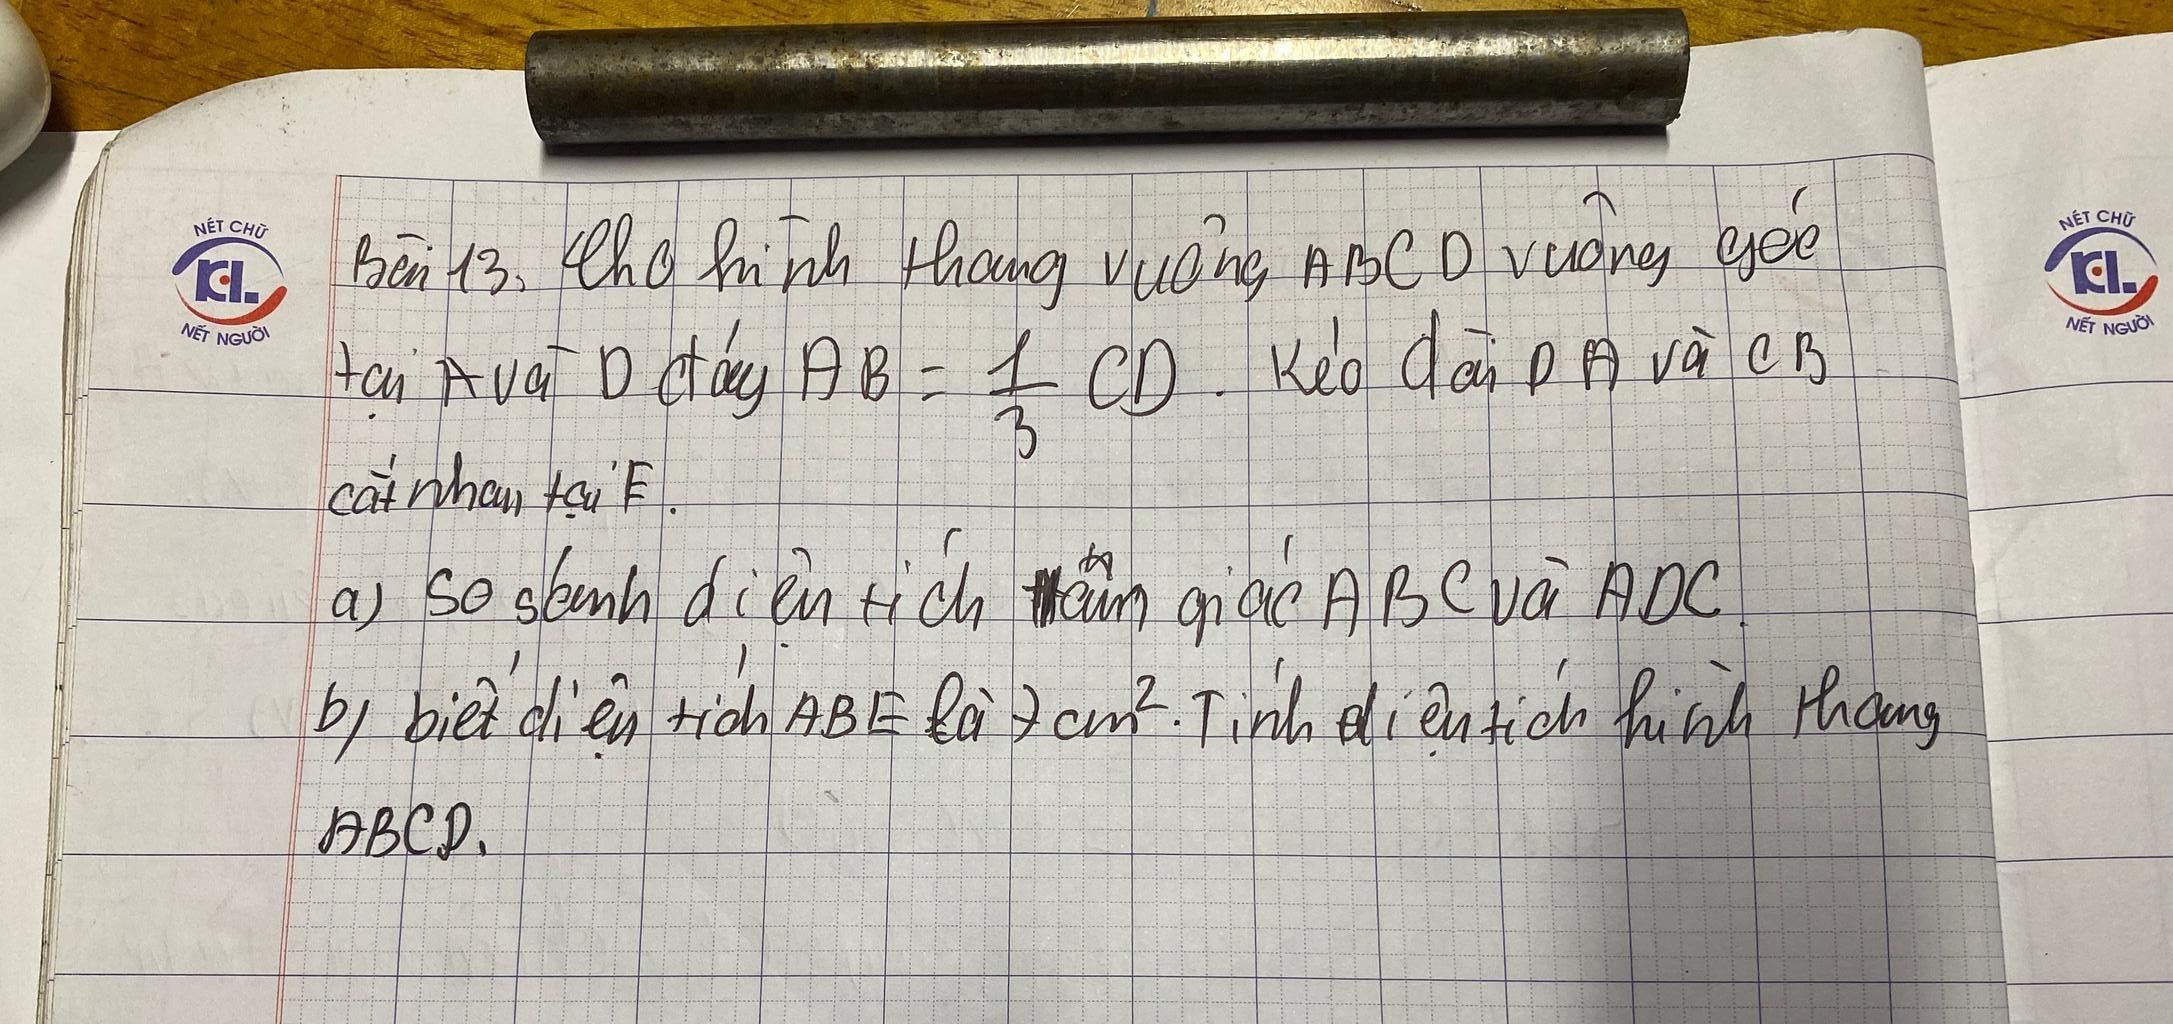 NÉT CHỮ
KL
NẾT NGƯỜI
Bài 13. Cho hình thang vuông ABCD vuông góc
tại A và D đáy AB = 1/3 CD. Kéo dài DA và CB
cắt nhau tại E.
a) So sánh diện tích tam giác ABC và ADC.
b) biết diện tích ABE là 7 cm². Tính diện tích hình thang
ABCD.
NÉT CHỮ
KL
NẾT NGƯỜI